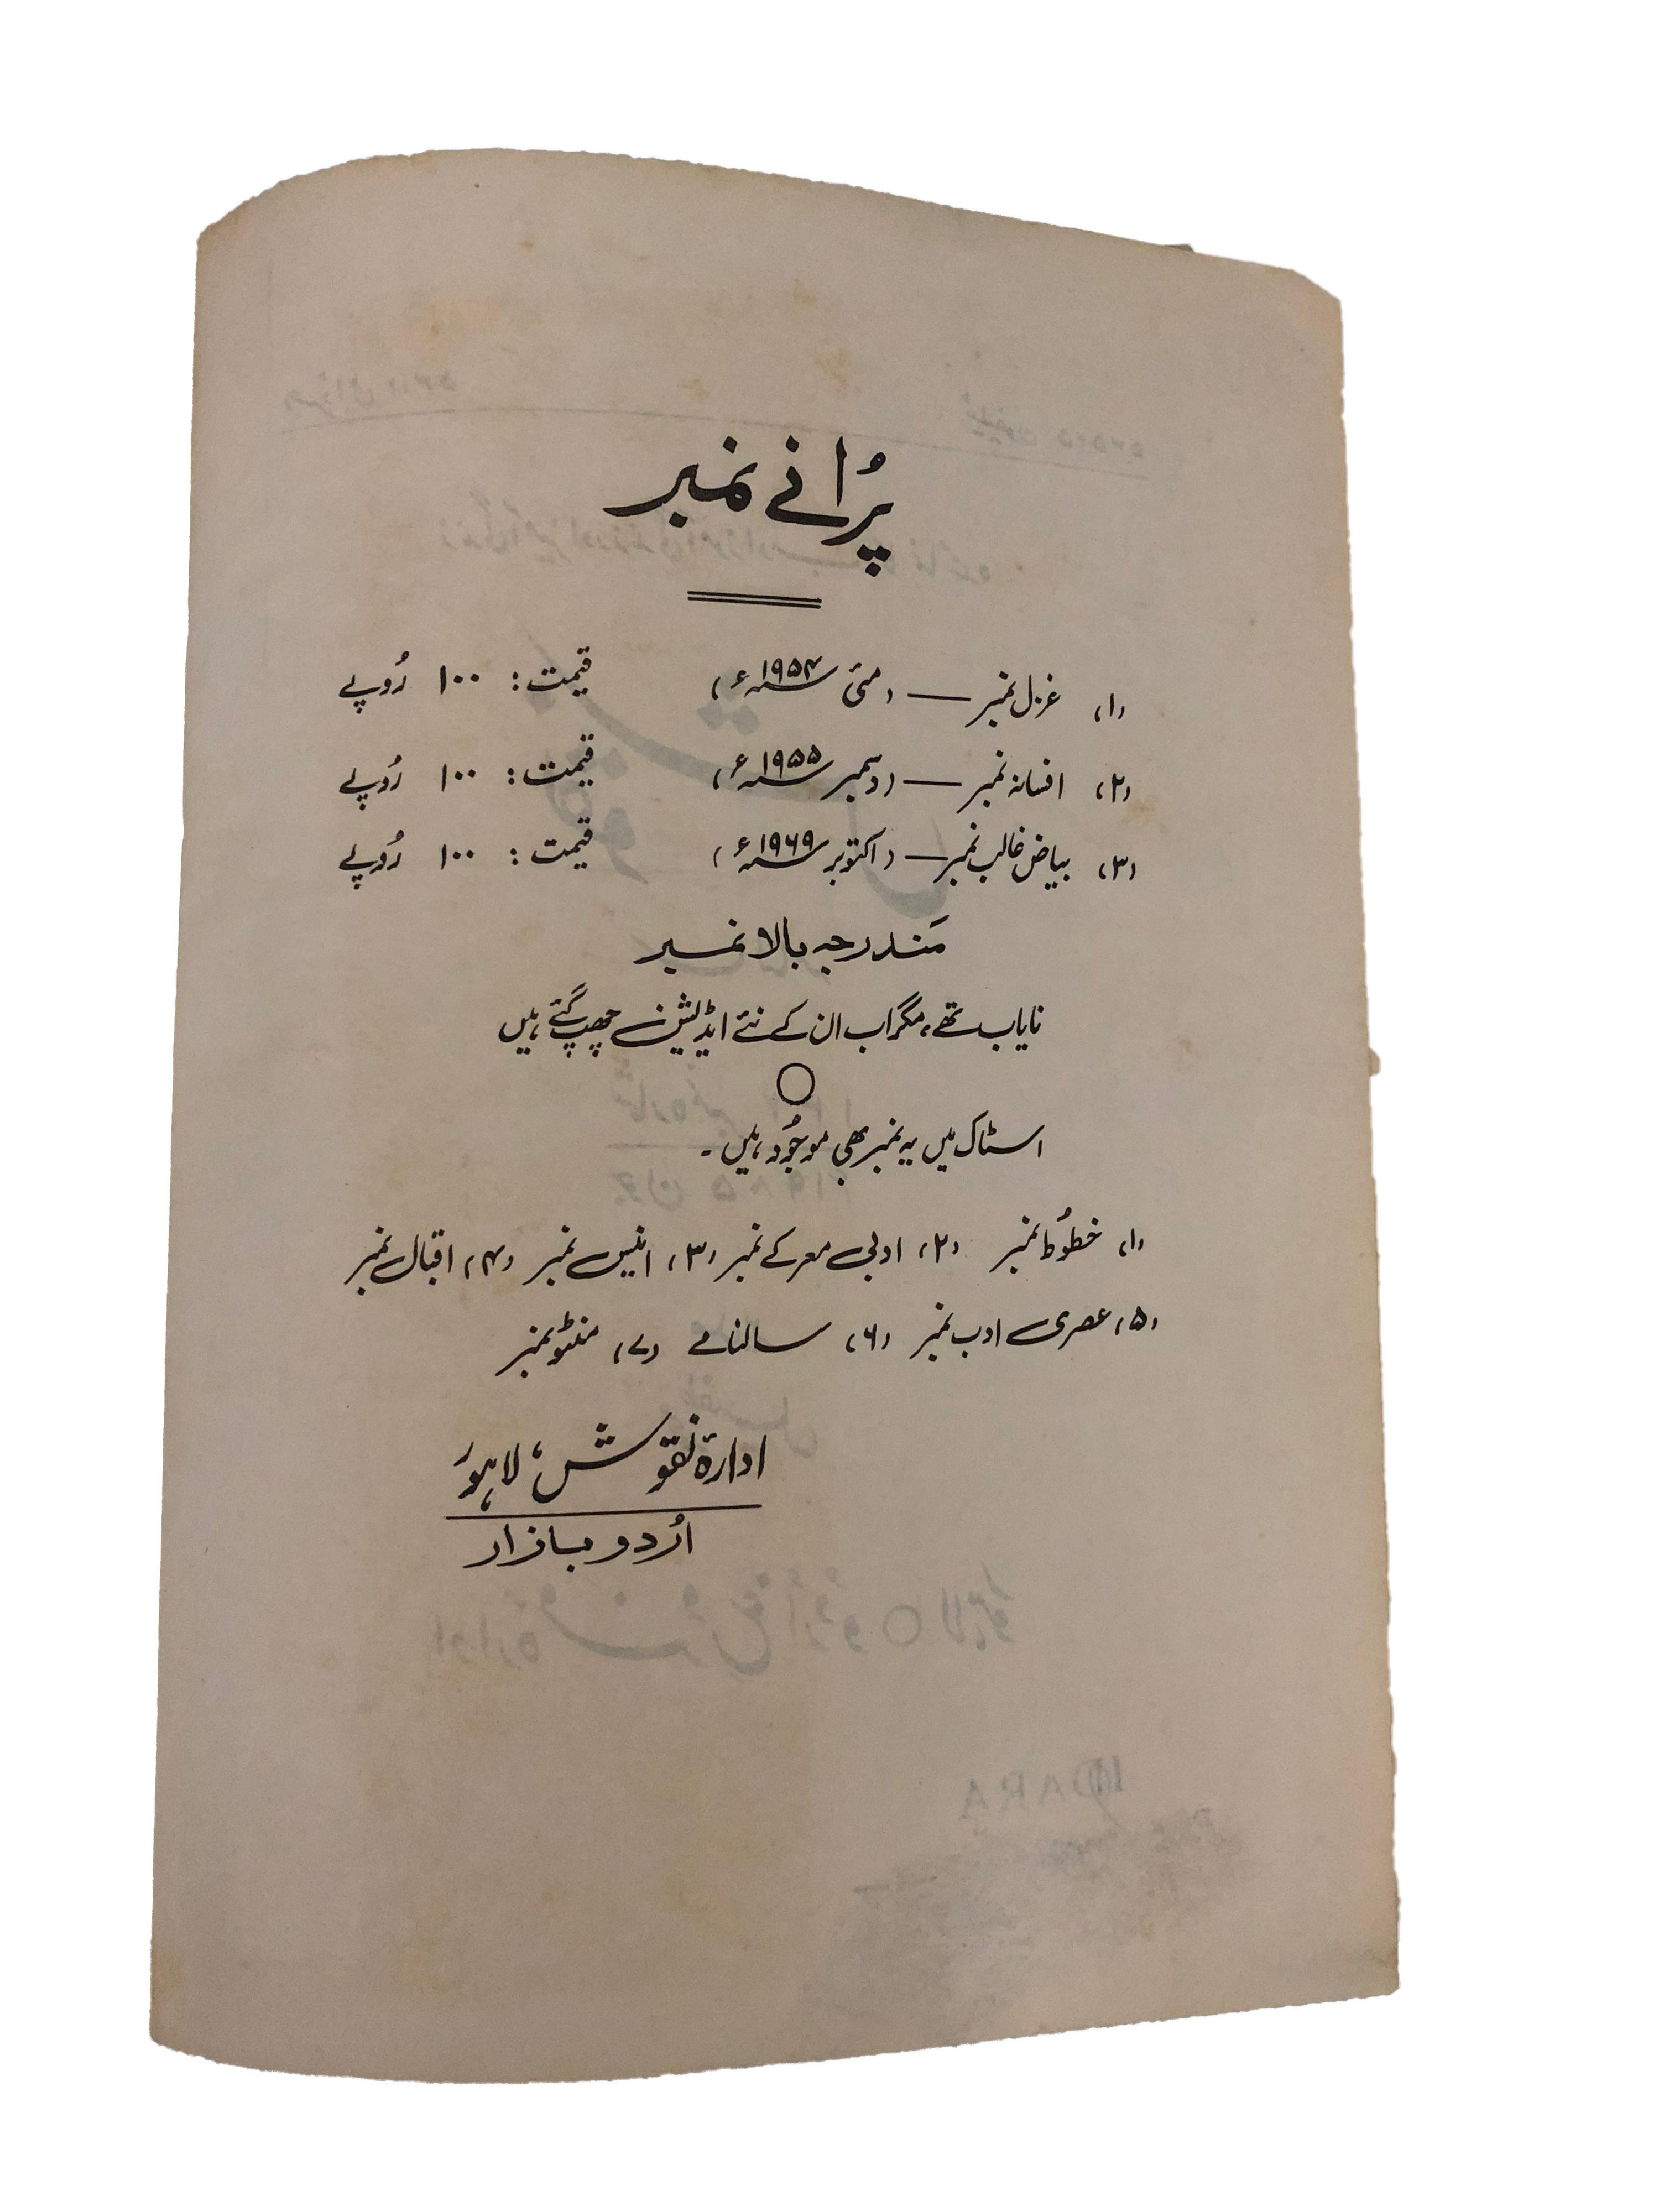 پُرانے نمبر
(۱) غزل نمبر — (مئی ۱۹۵۴ء) قیمت: ۱۰۰ رُوپے
(۲) افسانہ نمبر — (دسمبر ۱۹۵۵ء) قیمت: ۱۰۰ رُوپے
(۳) بیاض غالب نمبر — (اکتوبر ۱۹۶۹ء) قیمت: ۱۰۰ رُوپے
مَندرجہ بالا نمبر
نایاب تھے، مگر اب ان کے نئے ایڈیشن چھپ گئے ہیں
اسٹاک میں یہ نمبر بھی موجُود ہیں۔
(۱) خطوُط نمبر (۲) ادبی معرکے نمبر (۳) انیس نمبر (۴) اقبال نمبر
(۵) عصری ادب نمبر (۶) سالنامے (۷) منٹو نمبر
ادارۂ نقوش، لاہور
اُردو بازار